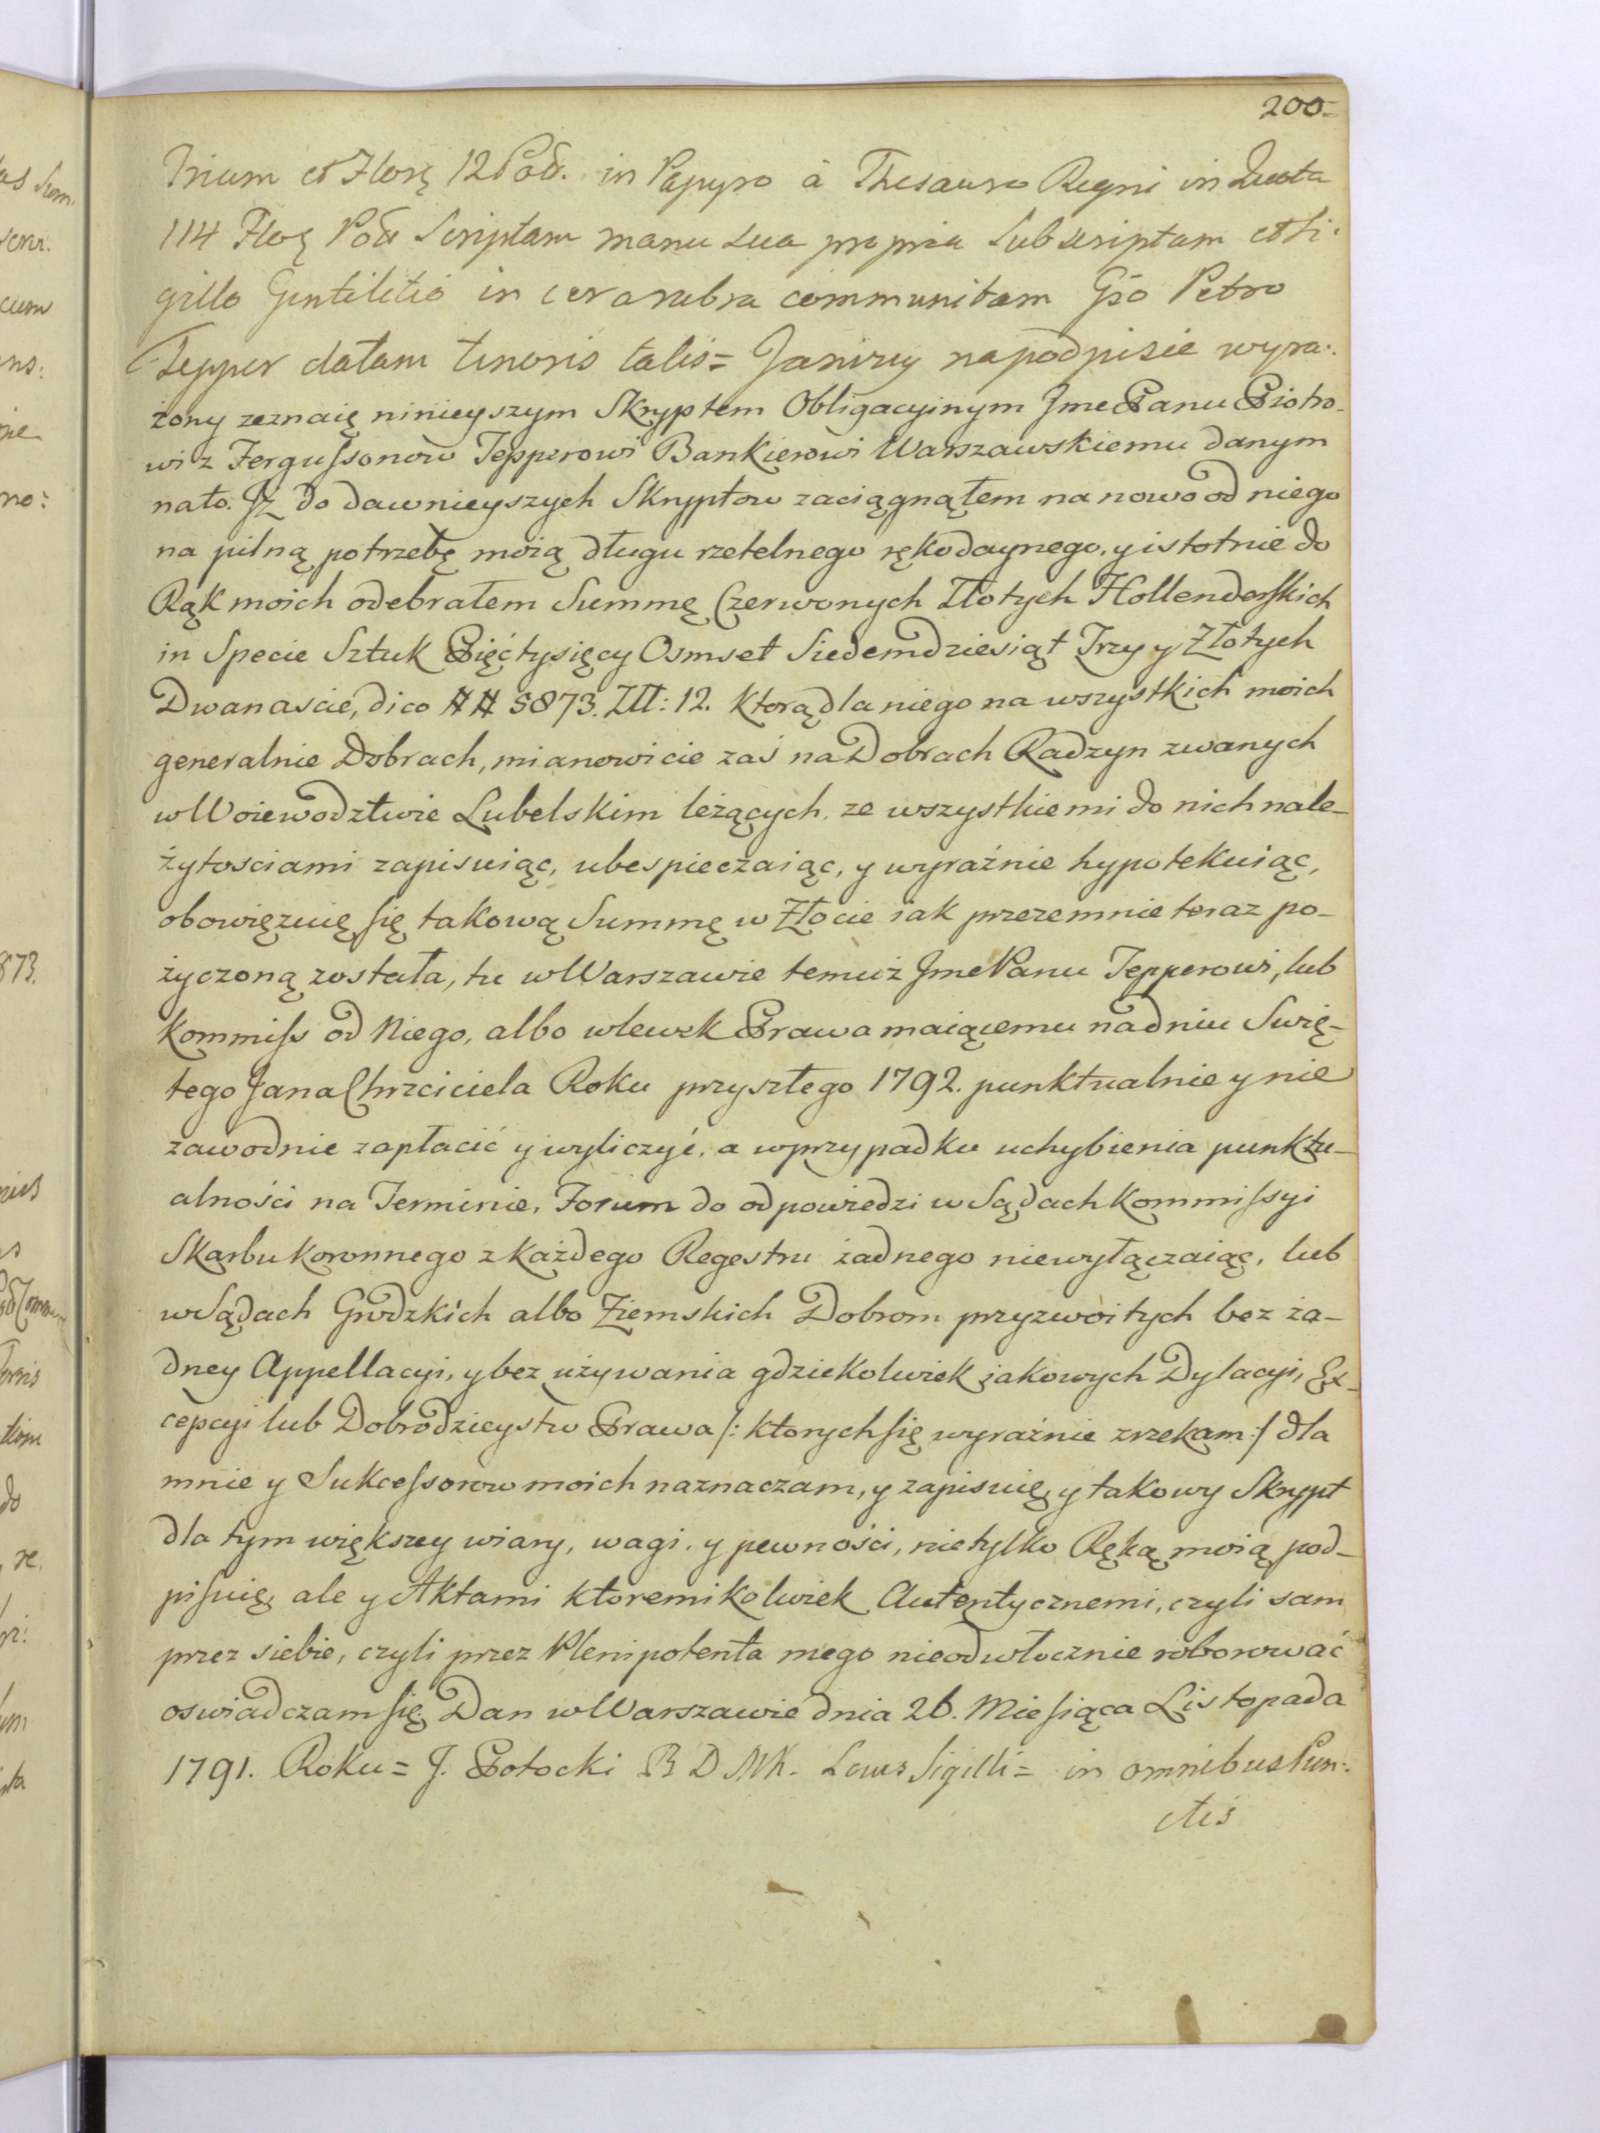 200
Trium et Flor: 12 Pol. in Papyro à Thesauro Regni in Quota
114 Flor: Pol: Scriptam manu sua propria Subscriptam et Si-
gillo Gentilitio in cera rubra communitam Gso Petro
Tepper datam tenoris talis = Ja niżey na podpisie wyra-
żony zeznaię ninieyszym Skryptem Obligacyinym Jme Panu Piotro-
wi z Fergussonow Tepperowi Bankierowi Warszawskiemu danym
na to. Jż do dawnieyszych Skryptow zaciągnąłem na nowo od niego
na pilną potrzebę moią długu rzetelnego rękodaynego, y istotnie do
Rąk moich odebrałem Summę Czerwonych Złotych Hollenderskich
in Specie Sztuk Pięć tysięcy Osmset Siedemdziesiąt Trzy y Złotych
Dwanascie, dico ## 5873. Złł: 12. ktorą dla niego na wszystkich moich
generalnie Dobrach, mianowicie zaś na Dobrach Radzyn zwanych
w Woiewodztwie Lubelskim leżących, ze wszystkiemi do nich nale-
żytosciami zapisuiąc, ubespieczaiąc, y wyraźnie hypotekuiąc,
obowięzuię się takową Summę w Złocie iak przezemnie teraz po-
życzoną została, tu w Warszawie temuż Jme Panu Tepperowi, lub
kommiss od Niego, albo wlewek Prawa maiącemu na dniu Swię-
tego Jana Chrzciciela Roku przyszłego 1792. punktualnie y nie
zawodnie zapłacić y wyliczyć, a w przypadku uchybienia punktu-
alności na Terminie, Forum do odpowiedzi w Sądach Kommissyi
Skarbu koronnego z każdego Regestru żadnego niewyłączaiąc, lub
w Sądach Grodzkich albo Ziemskich Dobrom przyzwoitych bez ża-
dney Appellacyi, y bez używania gdziekolwiek jakowych Dylacyi, Ex-
cepcyi lub Dobrodzieystw Prawa /: ktorych się wyraźnie zrzekam :/ dla
mnie y Sukcessorow moich naznaczam, y zapisuię, y takowy Skrypt
dla tym większey wiary, wagi, y pewności, nietylko Ręką moią pod-
pisuię, ale y Aktami ktoremikolwiek Autentycznemi, czyli sam
przez siebie, czyli przez Plenipotenta mego nieodwłocznie roborować
oswiadczam się. Dan w Warszawie dnia 26. Miesiąca Listopada
1791. Roku = J. Potocki Locus Sigilli = in omnibus Pun-
ctis